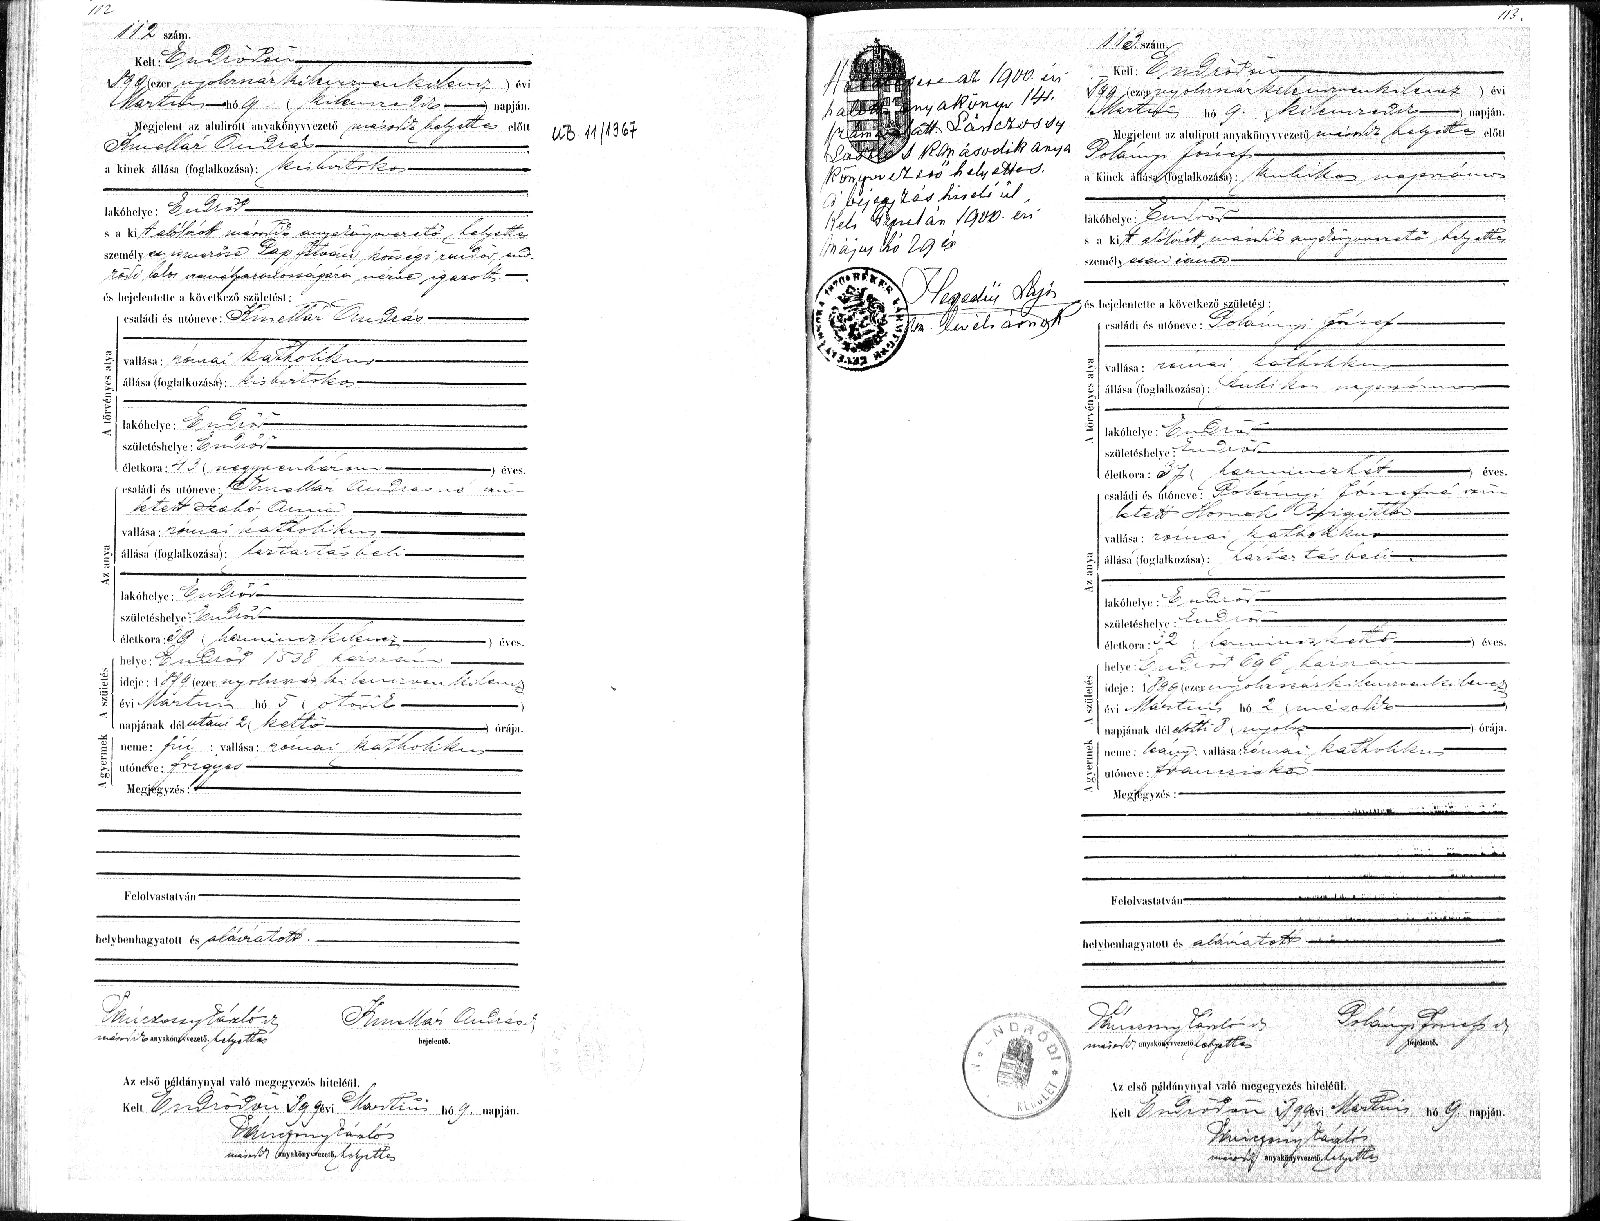 112
112 szám.
Kelt: Endrődön
189 (ezer nyolczszázkilenczvenkilencz) évi
Martius hó 9. (kilenczedik) napján.
Megjelent az alulirott anyakönyvvezető második helyettes előtt
Kmellár András
a kinek állása (foglalkozása): kisbirtokos
lakóhelye: Endrőd
s a kit alólirott második anyakönyvvezető helyettes
személy Pap István községi rendőr
és bejelentette a következő születést:
A törvényes atya
családi és utóneve: Kmellár András
vallása: római katholikus
állása (foglalkozása): kisbirtokos
lakóhelye: Endrőd
születéshelye: Endrőd
életkora: 43 (negyvenhárom) éves.
Az anya
családi és utóneve: Kmellár Andrásné szü-
letett Szabó Anna
vallása: római katholikus
állása (foglalkozása): háztartásbeli
lakóhelye: Endrőd
születéshelye: Endrőd
életkora: 39 (harminczkilencz) éves.
A születés
helye: Endrőd 1538 házszám
ideje: 1899 (ezer nyolczszázkilenczvenkilencz
évi Martius hó 5 (ötödik)
napjának délutáni 2 (kettő) órája.
A gyermek
neme: fiú; vallása: római katholikus
utóneve: Frigyes
Megjegyzés:
Felolvastatván
helybenhagyatott és aláiratott.
Lánczossy László
második anyakönyvvezető helyettes
Kmellár András
bejelentő.
Az első példánynyal való megegyezés hiteléül.
Kelt Endrődön 899 évi Martius hó 9. napján.
Lánczossy László
második anyakönyvvezető helyettes
11/1967
az 1900. évi
anyakönyv 141.
Lánczossy
második anya
könyvvezető helyettes.
A bejegyzés hiteléül
Kelt Gyulán 1900. évi
május hó 29 én
Hegedűs
113.
113 szám.
Kelt: Endrődön
899 (ezer nyolczszázkilenczvenkilencz) évi
Martius hó 9. (kilenczedik) napján.
Megjelent az alulirott anyakönyvvezető második helyettes előtt
Polányi József
a kinek állása (foglalkozása): kubikos napszámos
lakóhelye: Endrőd
s a kit alólirott, második anyakönyvvezető helyettes
személyesen ismer
és bejelentette a következő születést:
A törvényes atya
családi és utóneve: Polányi József
vallása: római katholikus
állása (foglalkozása): kubikos napszámos
lakóhelye: Endrőd
születéshelye: Endrőd
életkora: 37 (harminczhét) éves.
Az anya
családi és utóneve: Polányi Józsefné szüle-
letett Hornok Brigitta
vallása: római katholikus
állása (foglalkozása): háztartásbeli
lakóhelye: Endrőd
születéshelye: Endrőd
életkora: 32 (harminczkettő) éves.
A születés
helye: Endrőd 696 házszám
ideje: 1899 (ezer nyolczszázkilenczvenkilencz
évi Martius hó 2 (második)
napjának délelőtti 8 (nyolcz) órája.
A gyermek
neme: leány; vallása: római katholikus
utóneve: Francziska
Megjegyzés:
Felolvastatván
helybenhagyatott és aláiratott
Lánczossy László
második anyakönyvvezető helyettes
Polányi József
bejelentő.
ENDRŐDI
KERÜLET
Az első példánynyal való megegyezés hiteléül.
Kelt Endrődön 899 évi Martius hó 9. napján.
Lánczossy László
második anyakönyvvezető helyettes